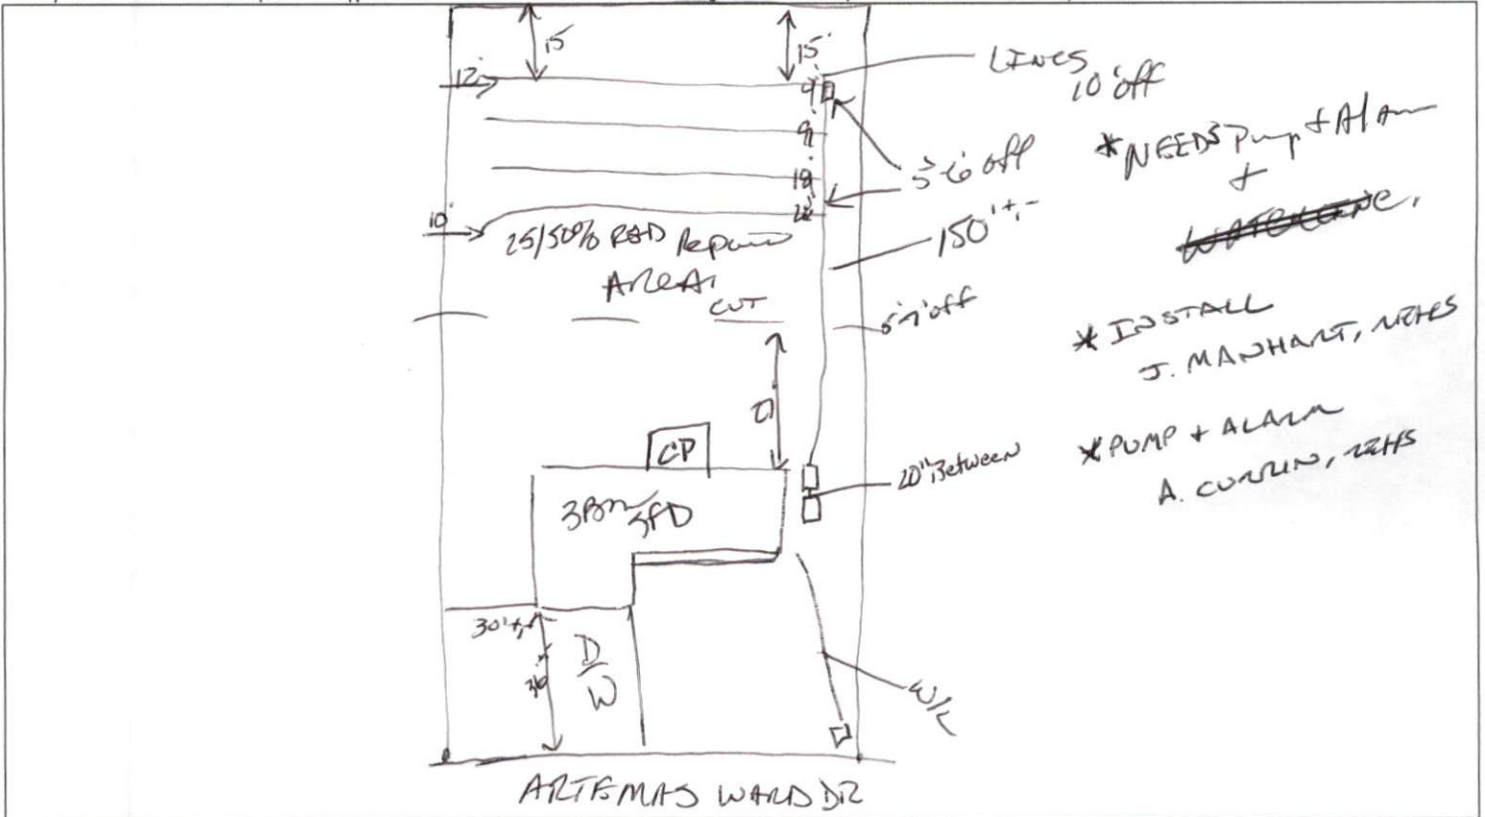 15'
15'
LINES
10' off
12'
9'
9'
18'
5'-6' off
*NEEDS Pump + Alarm
+
10'
25/50% RED Repair
AREA
150'+,-
CUT
off
*INSTALL
J. MANHART, REHS
CP
20" Between
*PUMP + ALARM
A. CURRIN, REHS
3Brm
SFD
30'+,-
D/W
W/L
ARTEMAS WARD DR